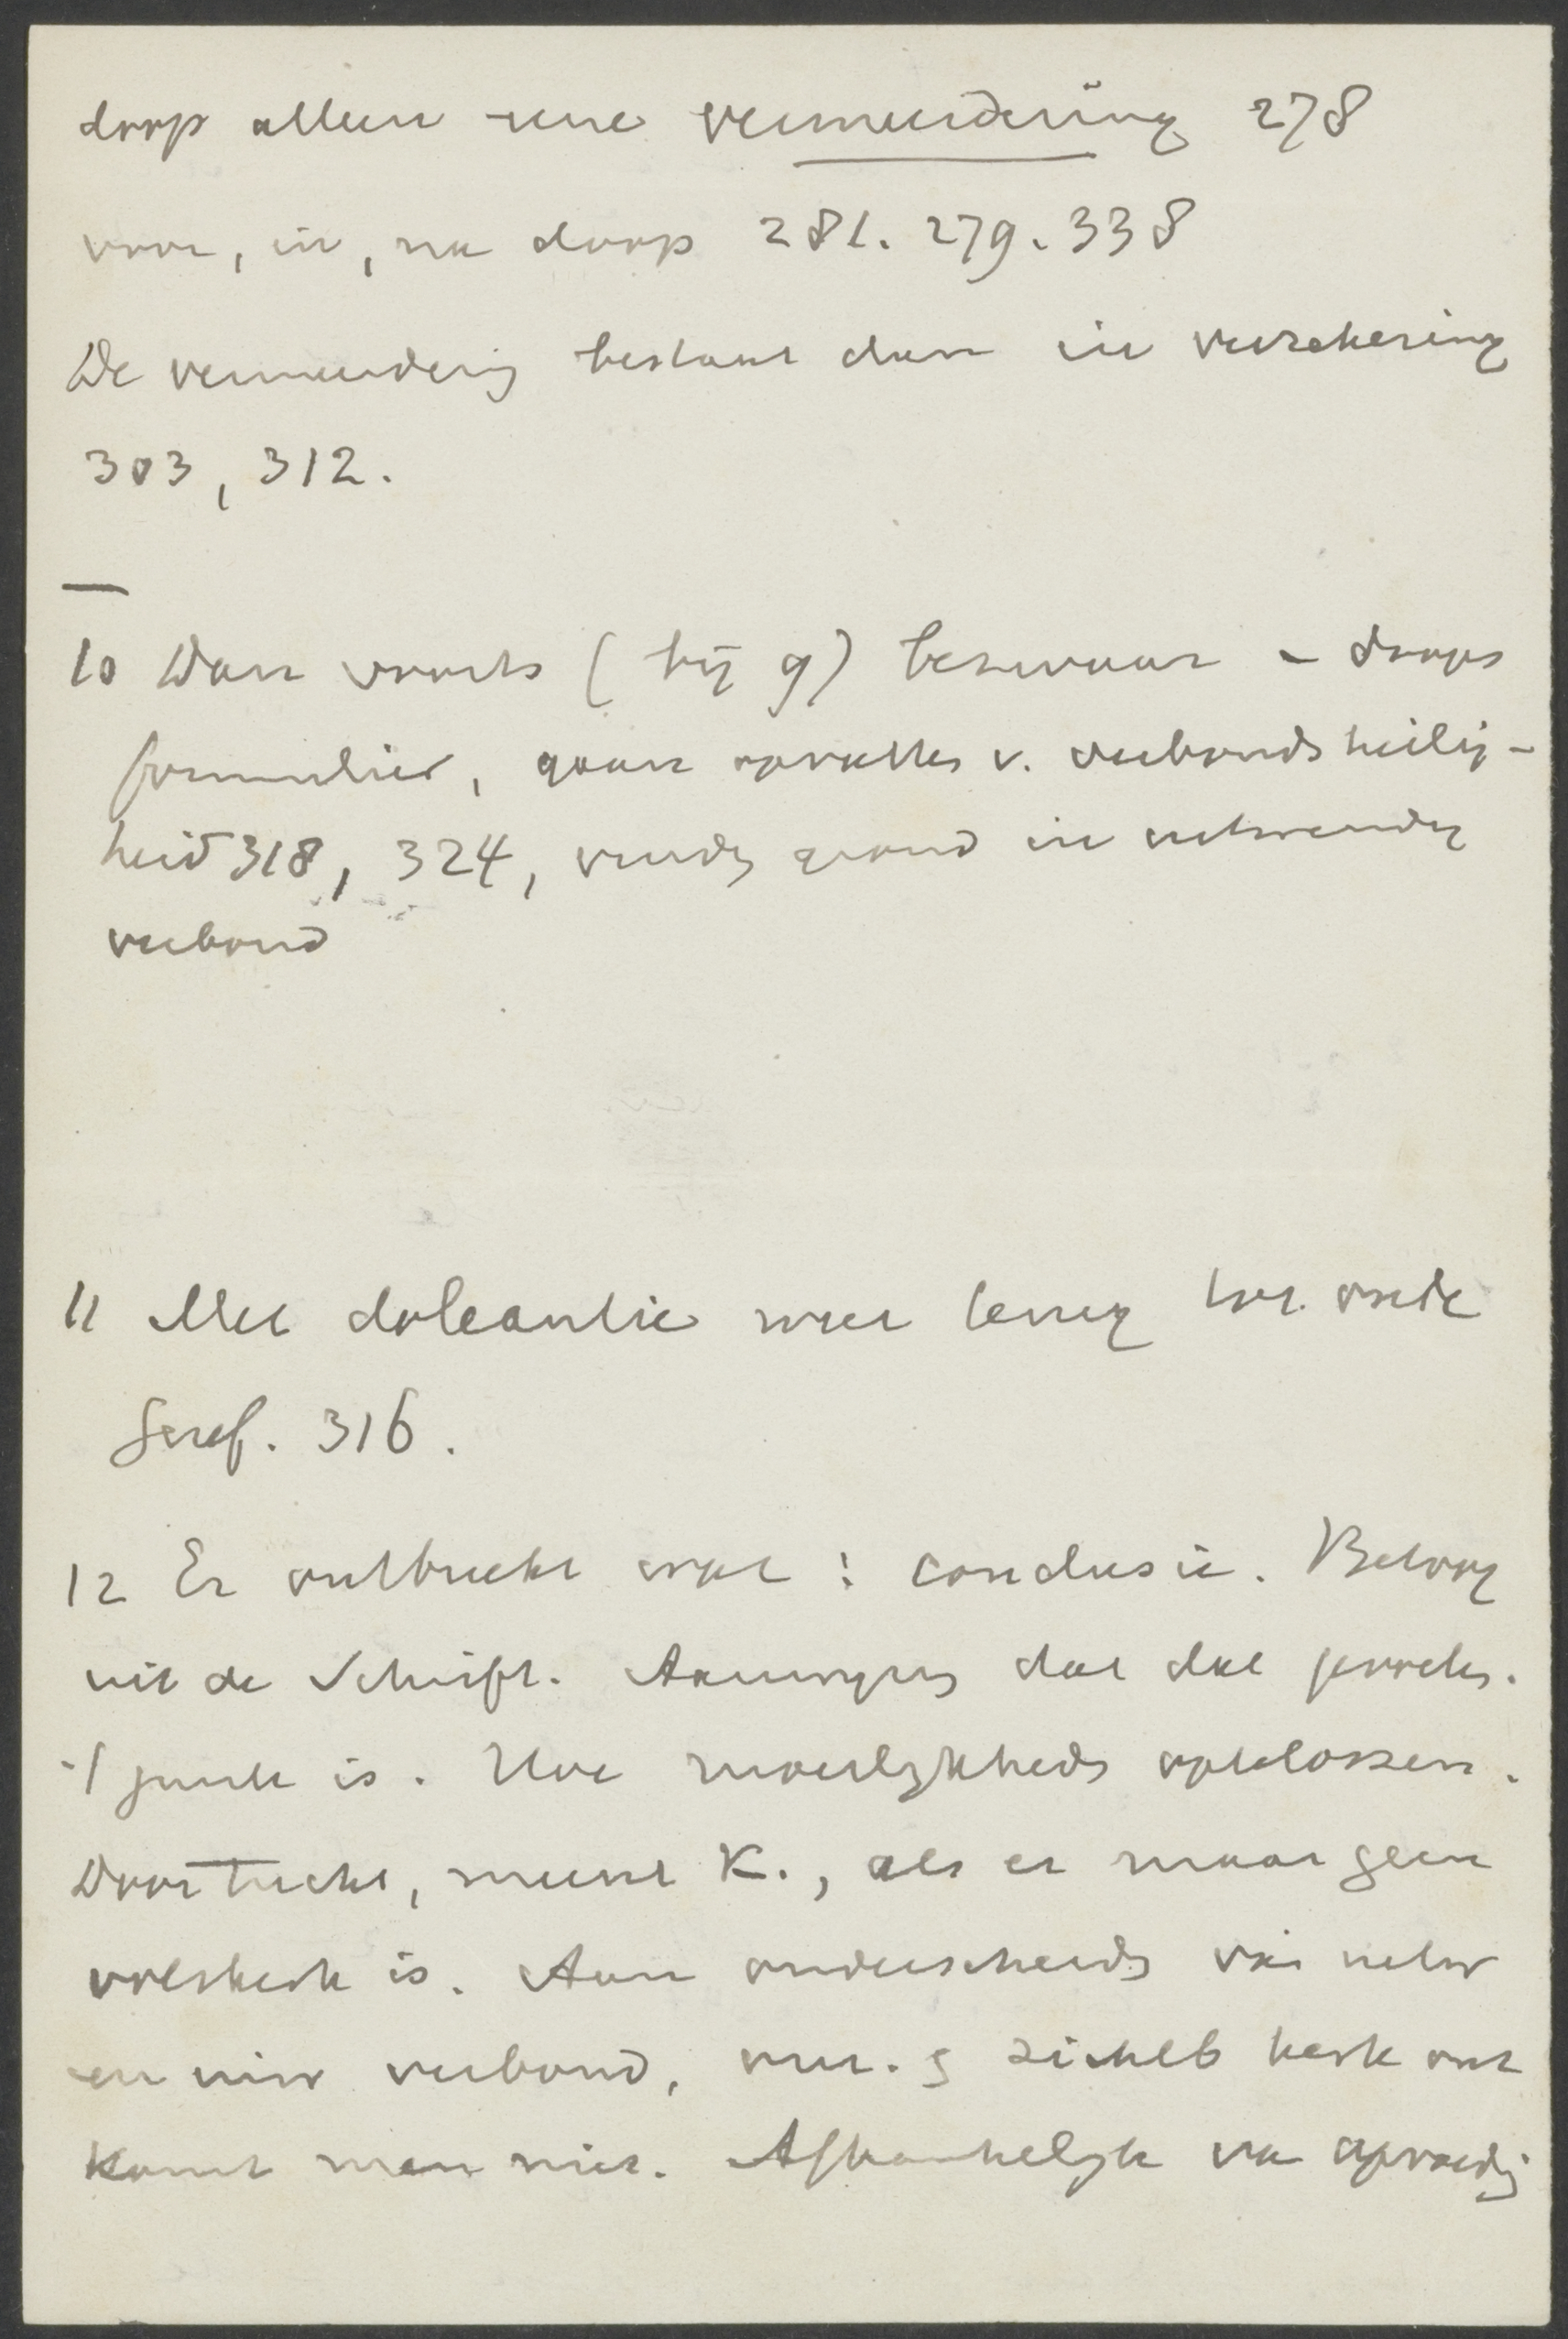 doop alleen eene vermeerdering 278
voor, in, na doop 281. 279. 338
De vermeerdering bestaat dan in verzekering
303, 312.
10 Dan voorts (bij 9) bezwaar – doops
formulier, gaan opvatten v. verbondsheilig-
heid 318, 324, vindt grond in uitwendig
verbond
11 Met doleantie weer terug tot oude
Geref. 316.
12 Er ontbreekt wat: conclusie. Betoog
uit de Schrift. Aanwijzing dat dat
punt is. Hoe moeilijkheden op te lossen.
Door tucht, meent K., als er maar geen
volkskerk is. Aan onderscheid van uitw
en inw verbond, onz. & zichtb kerk ont
komt man niet. Afhankelijk van opvoeding